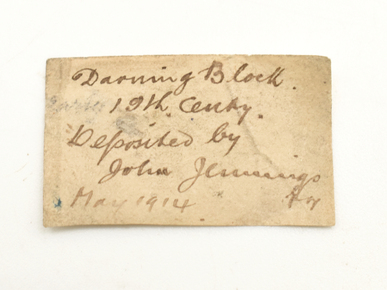 Darning Block.
19th Centy.
Deposited by
John Jennings
May 1914